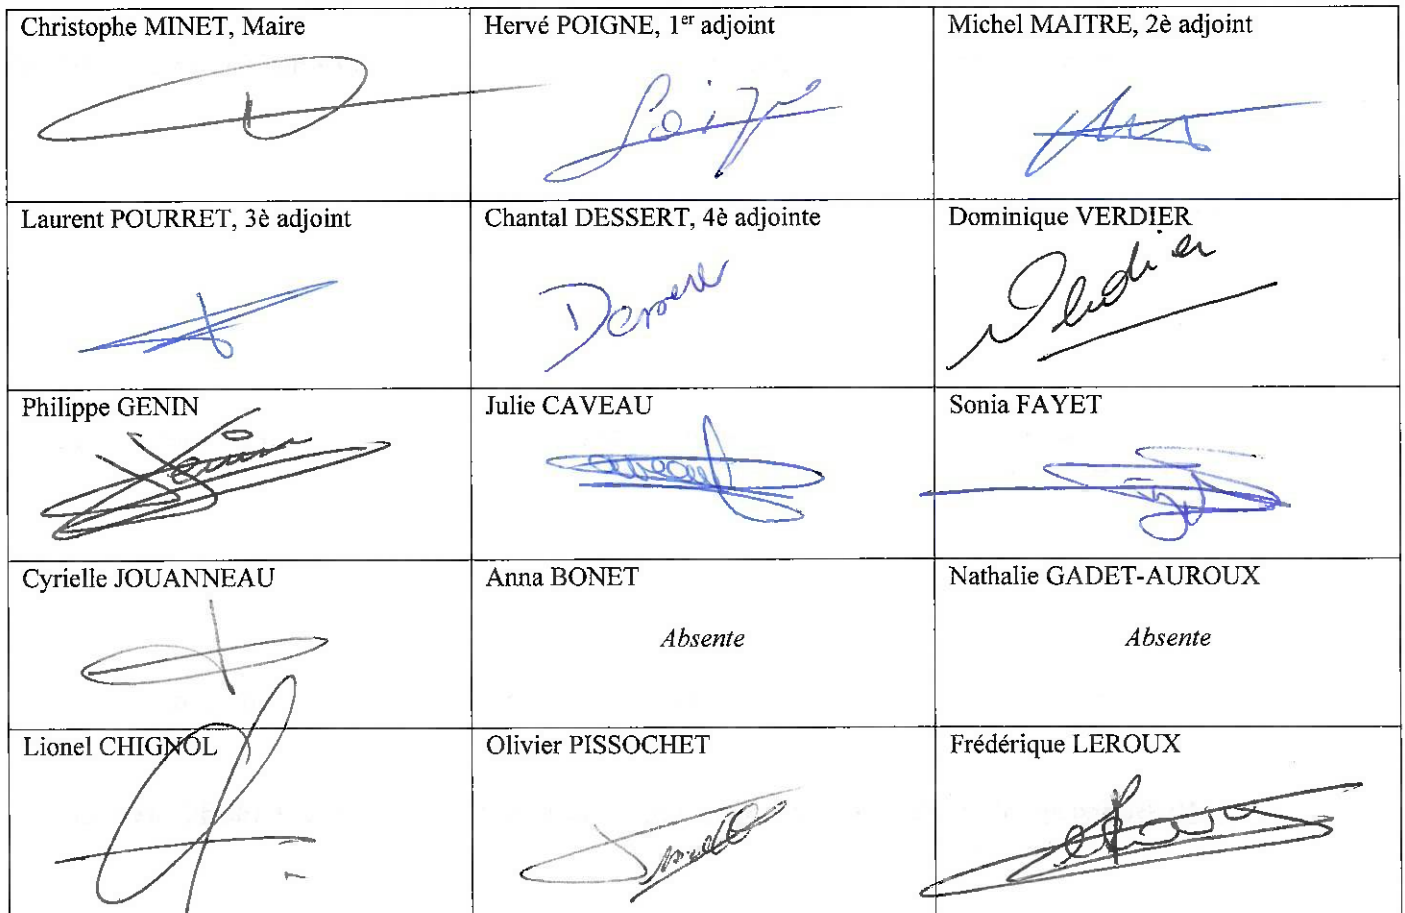 Christophe MINET, Maire
Hervé POIGNE, 1er adjoint
Michel MAITRE, 2è adjoint
Laurent POURRET, 3è adjoint
Chantal DESSERT, 4è adjointe
Dominique VERDIER
Verdier
Philippe GENIN
Julie CAVEAU
Sonia FAYET
Cyrielle JOUANNEAU
Anna BONET
Absente
Nathalie GADET-AUROUX
Absente
Lionel CHIGNOL
Olivier PISSOCHET
Frédérique LEROUX